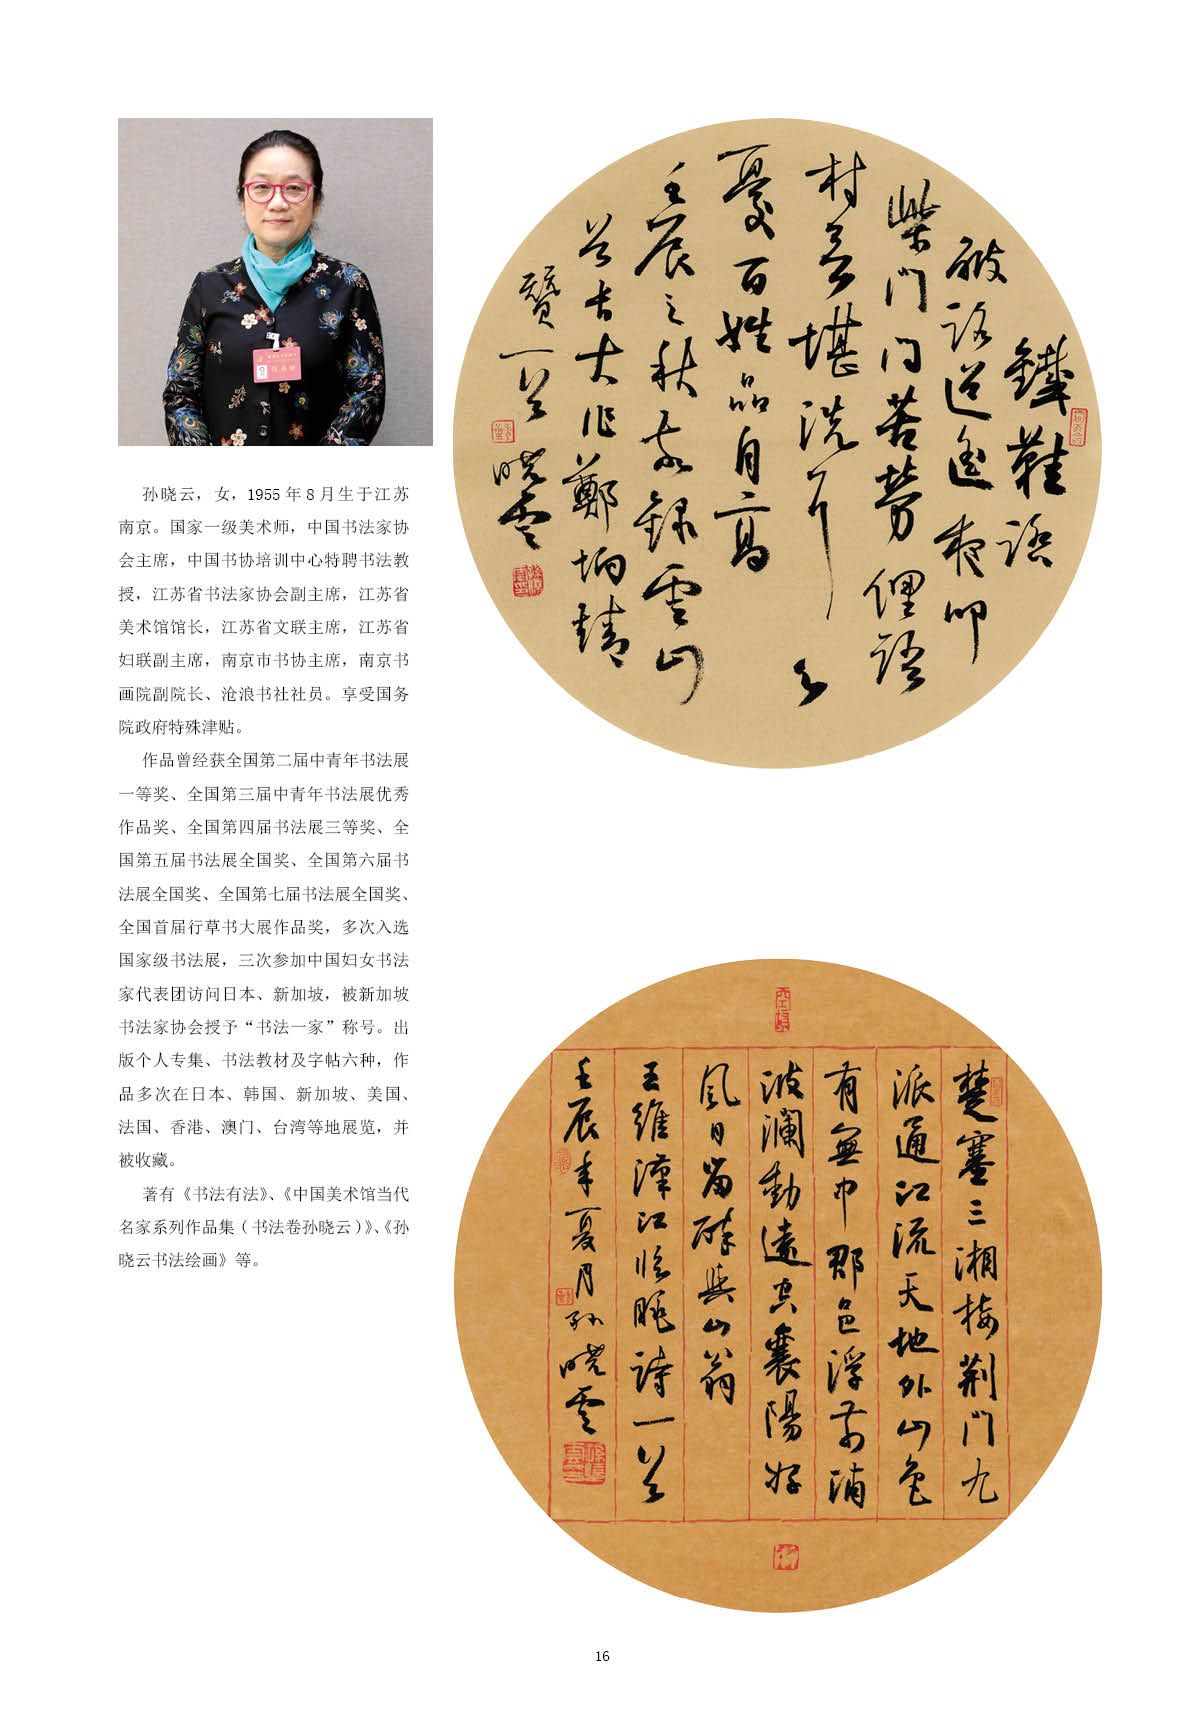 孙晓云，女，1955 年 8 月生于江苏
南京。国家一级美术师，中国书法家协
会主席，中国书协培训中心特聘书法教
授，江苏省书法家协会副主席，江苏省
美术馆馆长，江苏省文联主席，江苏省
妇联副主席，南京市书协主席，南京书
画院副院长、沧浪书社社员。享受国务
院政府特殊津贴。
作品曾经获全国第二届中青年书法展
一等奖、全国第三届中青年书法展优秀
作品奖、全国第四届书法展三等奖、全
国第五届书法展全国奖、全国第六届书
法展全国奖、全国第七届书法展全国奖、
全国首届行草书大展作品奖，多次入选
国家级书法展，三次参加中国妇女书法
家代表团访问日本、新加坡，被新加坡
书法家协会授予“书法一家”称号。出
版个人专集、书法教材及字帖六种，作
品多次在日本、韩国、新加坡、美国、
法国、香港、澳门、台湾等地展览，并
被收藏。
著有《书法有法》、《中国美术馆当代
名家系列作品集（书法卷孙晓云）》、《孙
晓云书法绘画》等。
鐵鞋踏
破路迢遥夜叩
柴門问苦勞俚語
村言堪洗耳心
憂百姓品自高
壬辰之秋敬録雲山
大作鄭
贊一首晓雲
楚塞三湘接荆門九
派通江流天地外山色
有無中郡邑浮前浦
波瀾動遠空襄陽好
風日留醉與山翁
王維漢江临眺詩一首
壬辰年夏月孙晓雲
16